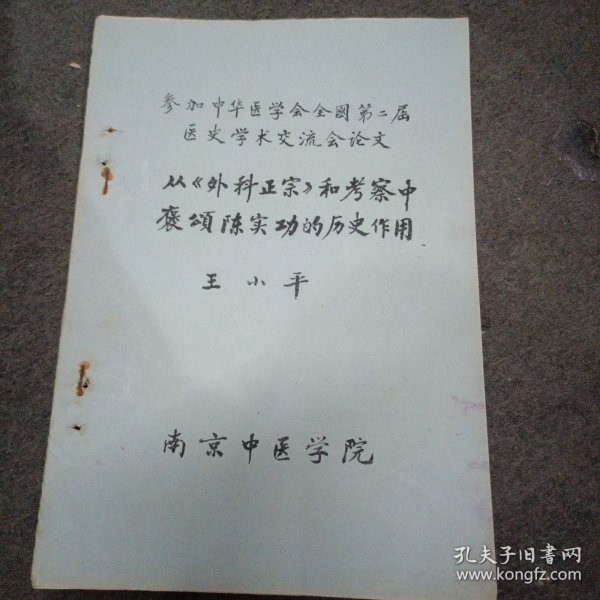 参加中华医学会全國第二届
医史学术交流会论文
从《外科正宗》和考察中
褒頌陈实功的历史作用
王小平
南京中医学院
孔夫子旧書网
www.kongfz.com